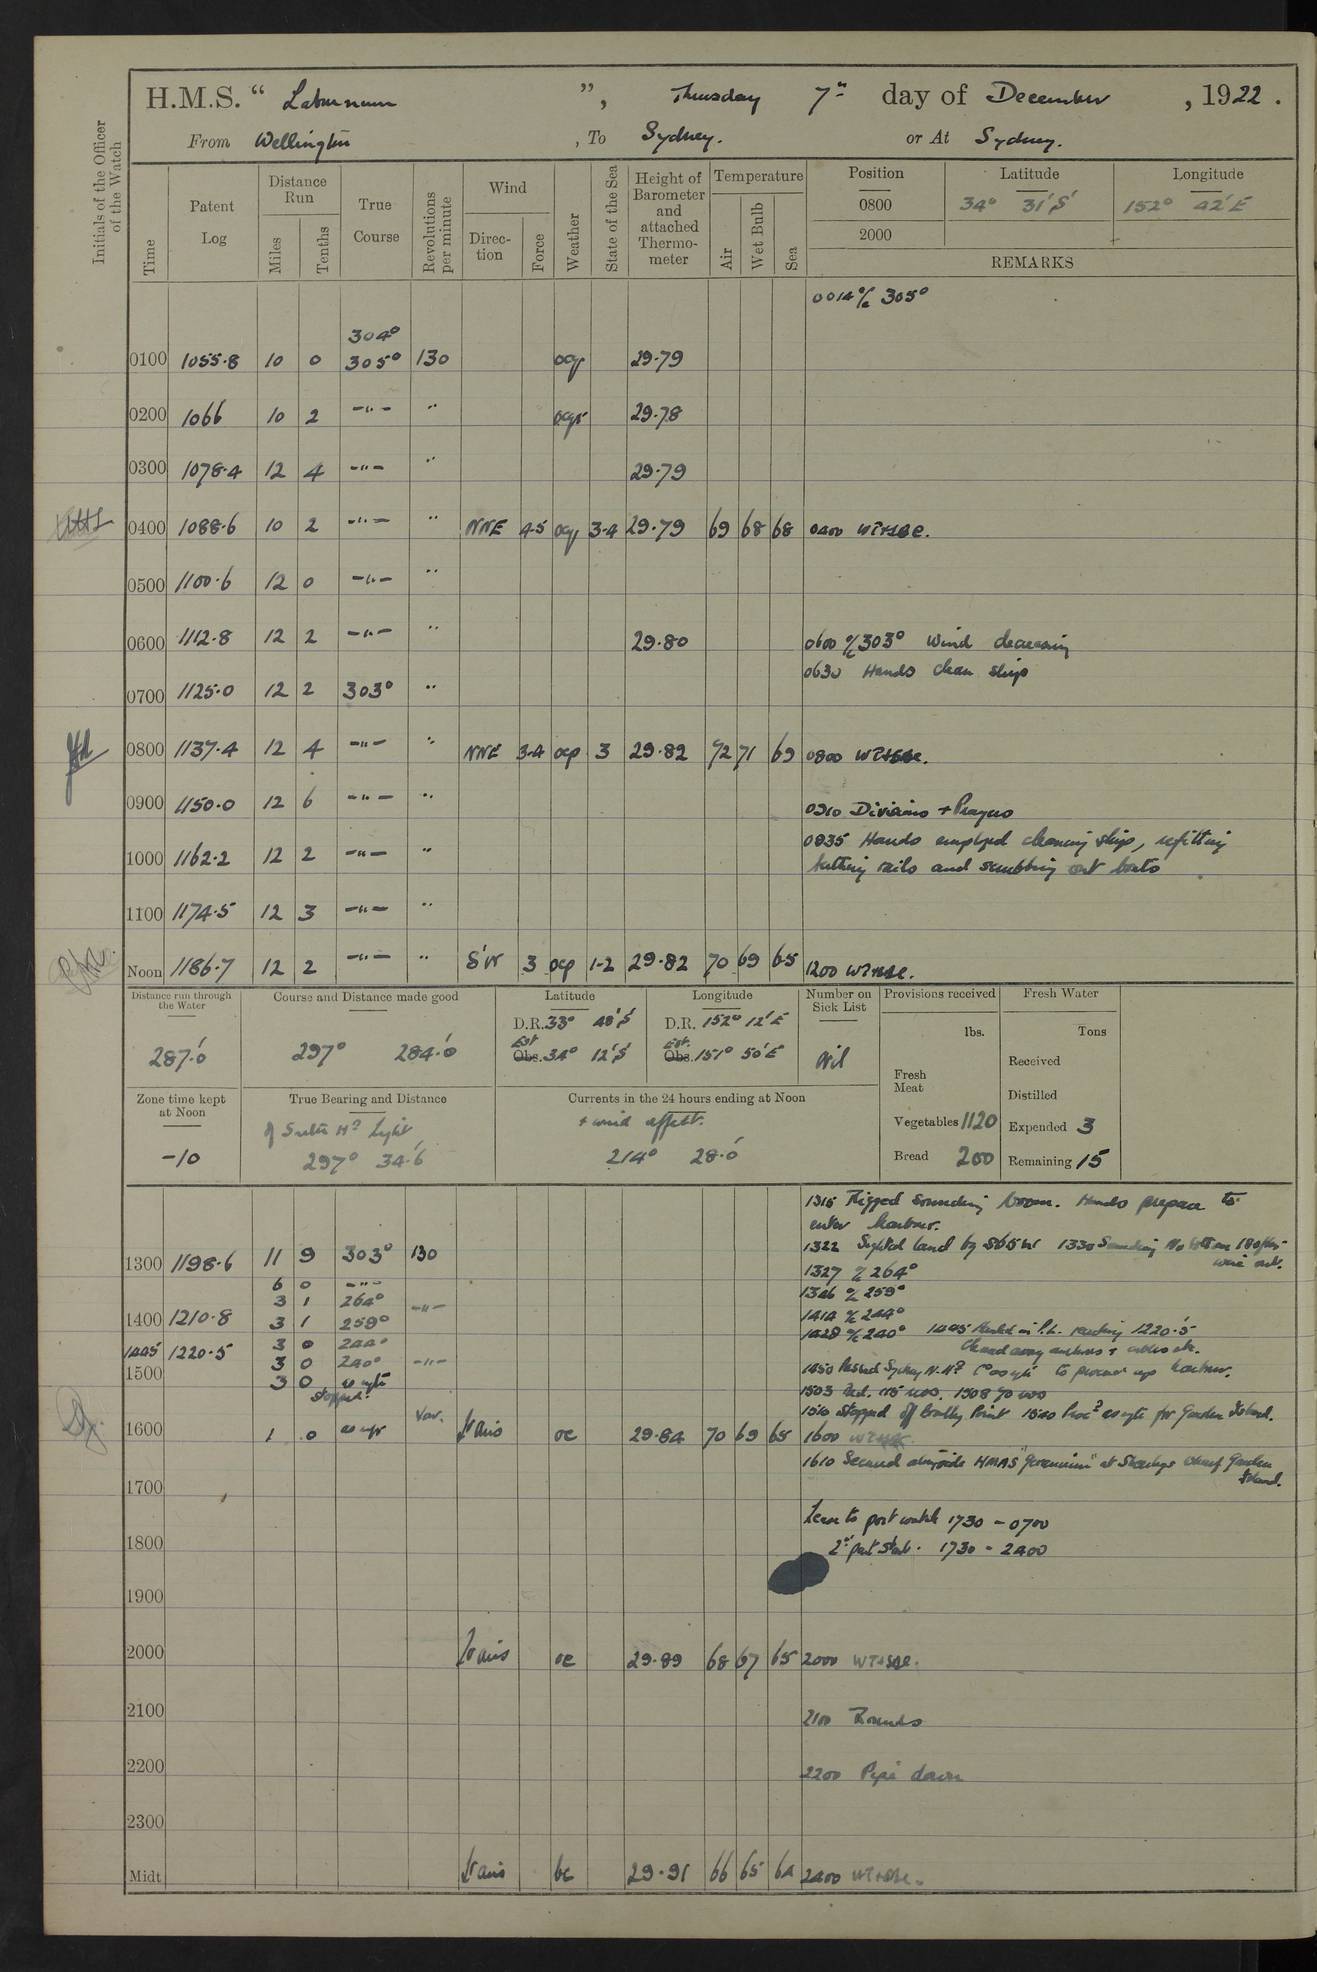 H.M.S. “ Laburnum ”, Thursday 7th day of December , 1922 .
From Wellington , To Sydney. or At Sydney.
Initials of the Officer of the Watch
Time
Patent Log
Distance Run
Miles
Tenths
True Course
Revolutions per minute
Wind
Direction
Force
Weather
State of the Sea
Height of Barometer and attached Thermometer
Temperature
Air
Wet Bulb
Sea
Position Latitude Longitude
0800 34° 31' S 152° 42' E
2000
REMARKS
0014 a/c 305°
304°
0100 1055.8 10 0 305° 130 29.79
0200 1066 10 2 -"- " 29.78
0300 1078.4 12 4 -"- " 29.79
0400 1088.6 10 2 -"- " NNE 4-5 3-4 29.79 69 68 68 0400
0500 1100.6 12 0 -"- "
0600 1112.8 12 2 -"- " 29.80 0600 a/c 303° Wind decreasing
0630 Hands clean ship
0700 1125.0 12 2 303° "
0800 1137.4 12 4 -"- " NNE 3-4 ocp 3 29.82 72 71 69 0800
0900 1150.0 12 6 -"- " 0910 Divisions + Prayers
0935 Hands employed cleaning ship, refitting
1000 1162.2 12 2 -"- "
rails and scrubbing out boats
1100 1174.5 12 3 -"- "
Noon 1186.7 12 2 -"- " S'W 3 ocp 1-2 29.82 70 69 65 1200
Distance run through the Water
287.0
Course and Distance made good
297° 284.0
Latitude
D.R. 33° 48' S
Est Obs. 34° 12' S
Longitude
D.R. 152° 12' E
Est. Obs. 151° 50' E
Number on Sick List
Nil
Provisions received
lbs.
Fresh Meat
Vegetables 1120
Bread 200
Fresh Water
Tons
Received
Distilled
Expended 3
Remaining 15
Zone time kept at Noon
-10
True Bearing and Distance
of Outer Hd Light
297° 34.6
Currents in the 24 hours ending at Noon
+ wind effect.
214° 28.0
1315 Rigged sounding boom. Hands prepare to
enter harbour.
1322 Sighted land 1330 Sounding No bottom 180 fms
wire out.
1300 1198.6 11 9 303° 130
1327 a/c 264°
6 0 -"-
1346 a/c 259°
3 1 264°
1414 a/c 244°
1400 1210.8 3 1 259° -"-
1428 a/c 240° 1445 Hauled in P.L. reading 1220.5
Cleared away anchors + cables etc.
3 0 244°
1445 1220.5 3 0 240° -"-
1450 Passed Sydney N. Hd. Co as req to proceed up harbour.
1500 3 0 as reqte
stopped.
1503 Red. 115 revs. 1508 70 revs
1510 Stopped off Bradley Point 1540 Procd as reqte for Garden Island.
1600 1 0 as req Var. Vars oc 29.84 70 69 65 1600
1610 Secured alongside HMAS "Geranium" at wharf Garden
Island.
1700
Leave to port watch 1730 - 0700
1800
2nd part Starb. 1730 - 2400
1900
2000 Vars oc 29.89 68 67 65 2000
2100 2100 Rounds
2200 2200 Pipe down
2300
Midt Vars bc 29.91 66 65 64 2400